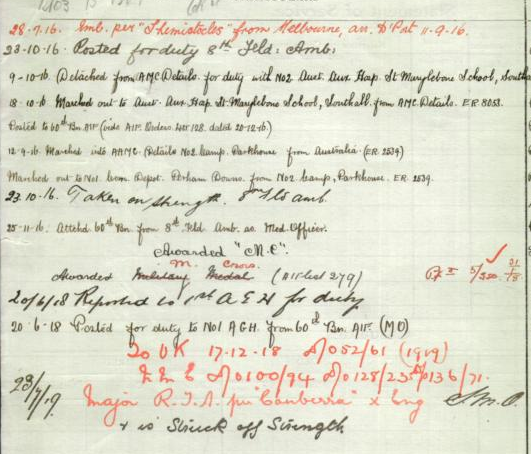 28-7-16. Emb. per "Themistocles" from Melbourne, arr. D'Port 11-9-16.
23-10-16. Posted for duty 8th Fld: Amb:
9-10-16. Detached from AMC Details. for duty with No2 Aust. Aux. Hosp. St Marylebone School, South
18-10-16 Marched out to Aust. Aux. Hosp. St. Marylebone School, Southall from AMC. Details. ER.8053.
Posted to 60th Bn. AIF (vide AIF. Orders. List 128. dated 20-12-16)
12-9-16. Marched into AAMC. Details No2 Camp. Parkhouse from Australia. (ER 2534)
Marched out to No1 Com. Depot. Perham Downs. from No2 Camp, Parkhouse. ER. 2539.
23.10.16. Taken on strength. 8th Fld amb.
25-11-16. Attchd 60th Bn from 8th Fld Amb. as Med. Officer.
Awarded "M.C".
M. Cross
Awarded Military Medal (AIF List 279)
20/6/18 Reported to 1st A G H for duty
20-6-18 Posted for duty to No1 AGH. from 60th Bn. AIF. (MO)
To UK 17-12-18 A/052/61 (1919)
A/0100/94 A/0128/23 A/0136/71.
23/7/19. Major R.T.A. per "Canberra" x Eng
& is Struck off Strength